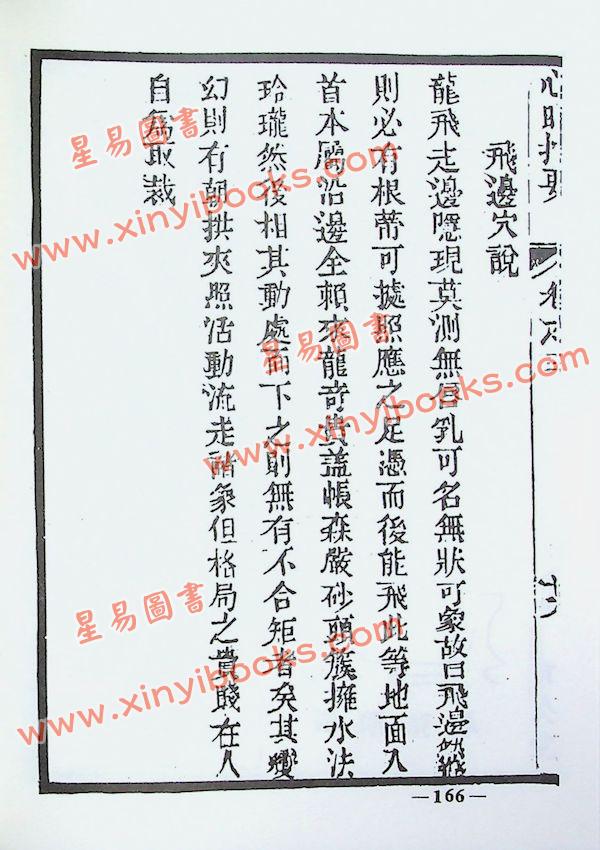 飛邊穴說
龍飛走邊隱現莫測無唇乳可名無狀可象故曰飛邊然飛
則必有根蒂可據照應之足憑而後能飛此等地面入
首本屬沿邊全賴來龍奇貴蓋帳森嚴砂頭簇擁水法
玲瓏然後相其動處而下之則無有不合矩者矣其變
幻則有朝拱夾照活動流走諸象但格局之貴賤在人
自為取裁
—166—
星易圖書
www.xinyibooks.com
星易圖書
www.xinyibooks.com
星易圖書
www.xinyibooks.com